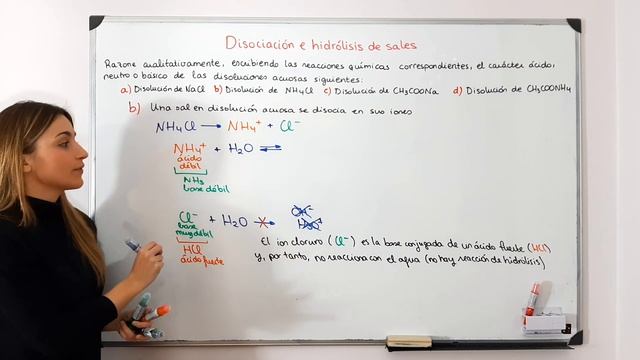 Disociación e hidrólisis de sales
Razone cualitativamente, escribiendo las reacciones químicas correspondientes, el carácter ácido,
neutro o básico de las disoluciones acuosas siguientes:
a) Disolución de NaCl b) Disolución de NH₄Cl c) Disolución de CH₃COONa d) Disolución de CH₃COONH₄
b) Una sal en disolución acuosa se disocia en sus iones
NH₄Cl → NH₄⁺ + Cl⁻
NH₄⁺ + H₂O ⇌
ácido
débil
NH₃
base débil
Cl⁻ + H₂O →
base
muy débil
HCl
ácido fuerte
El ion cloruro (Cl⁻) es la base conjugada de un ácido fuerte (HCl)
y, por tanto, no reacciona con el agua (no hay reacción de hidrólisis)